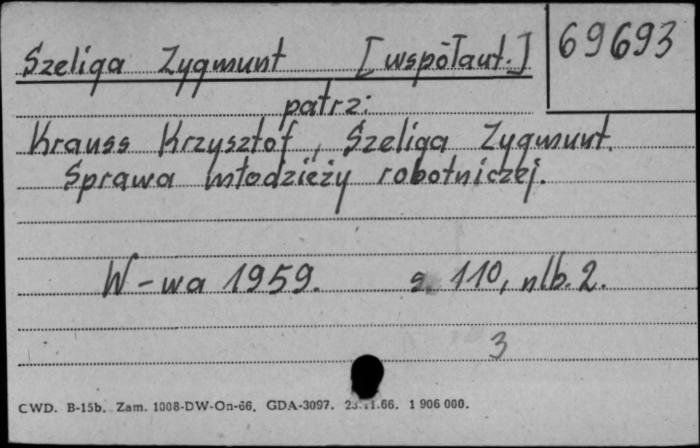 Szeliga Zygmunt [współaut.] 69693
patrz:
Krauss Krzysztof, Szeliga Zygmunt.
Sprawa młodzieży robotniczej.
W-wa 1959. s. 110, nlb. 2.
3
CWD. B-15b. Zam. 1008-DW-On-66. GDA-3097. 23.11.66. 1 906 000.